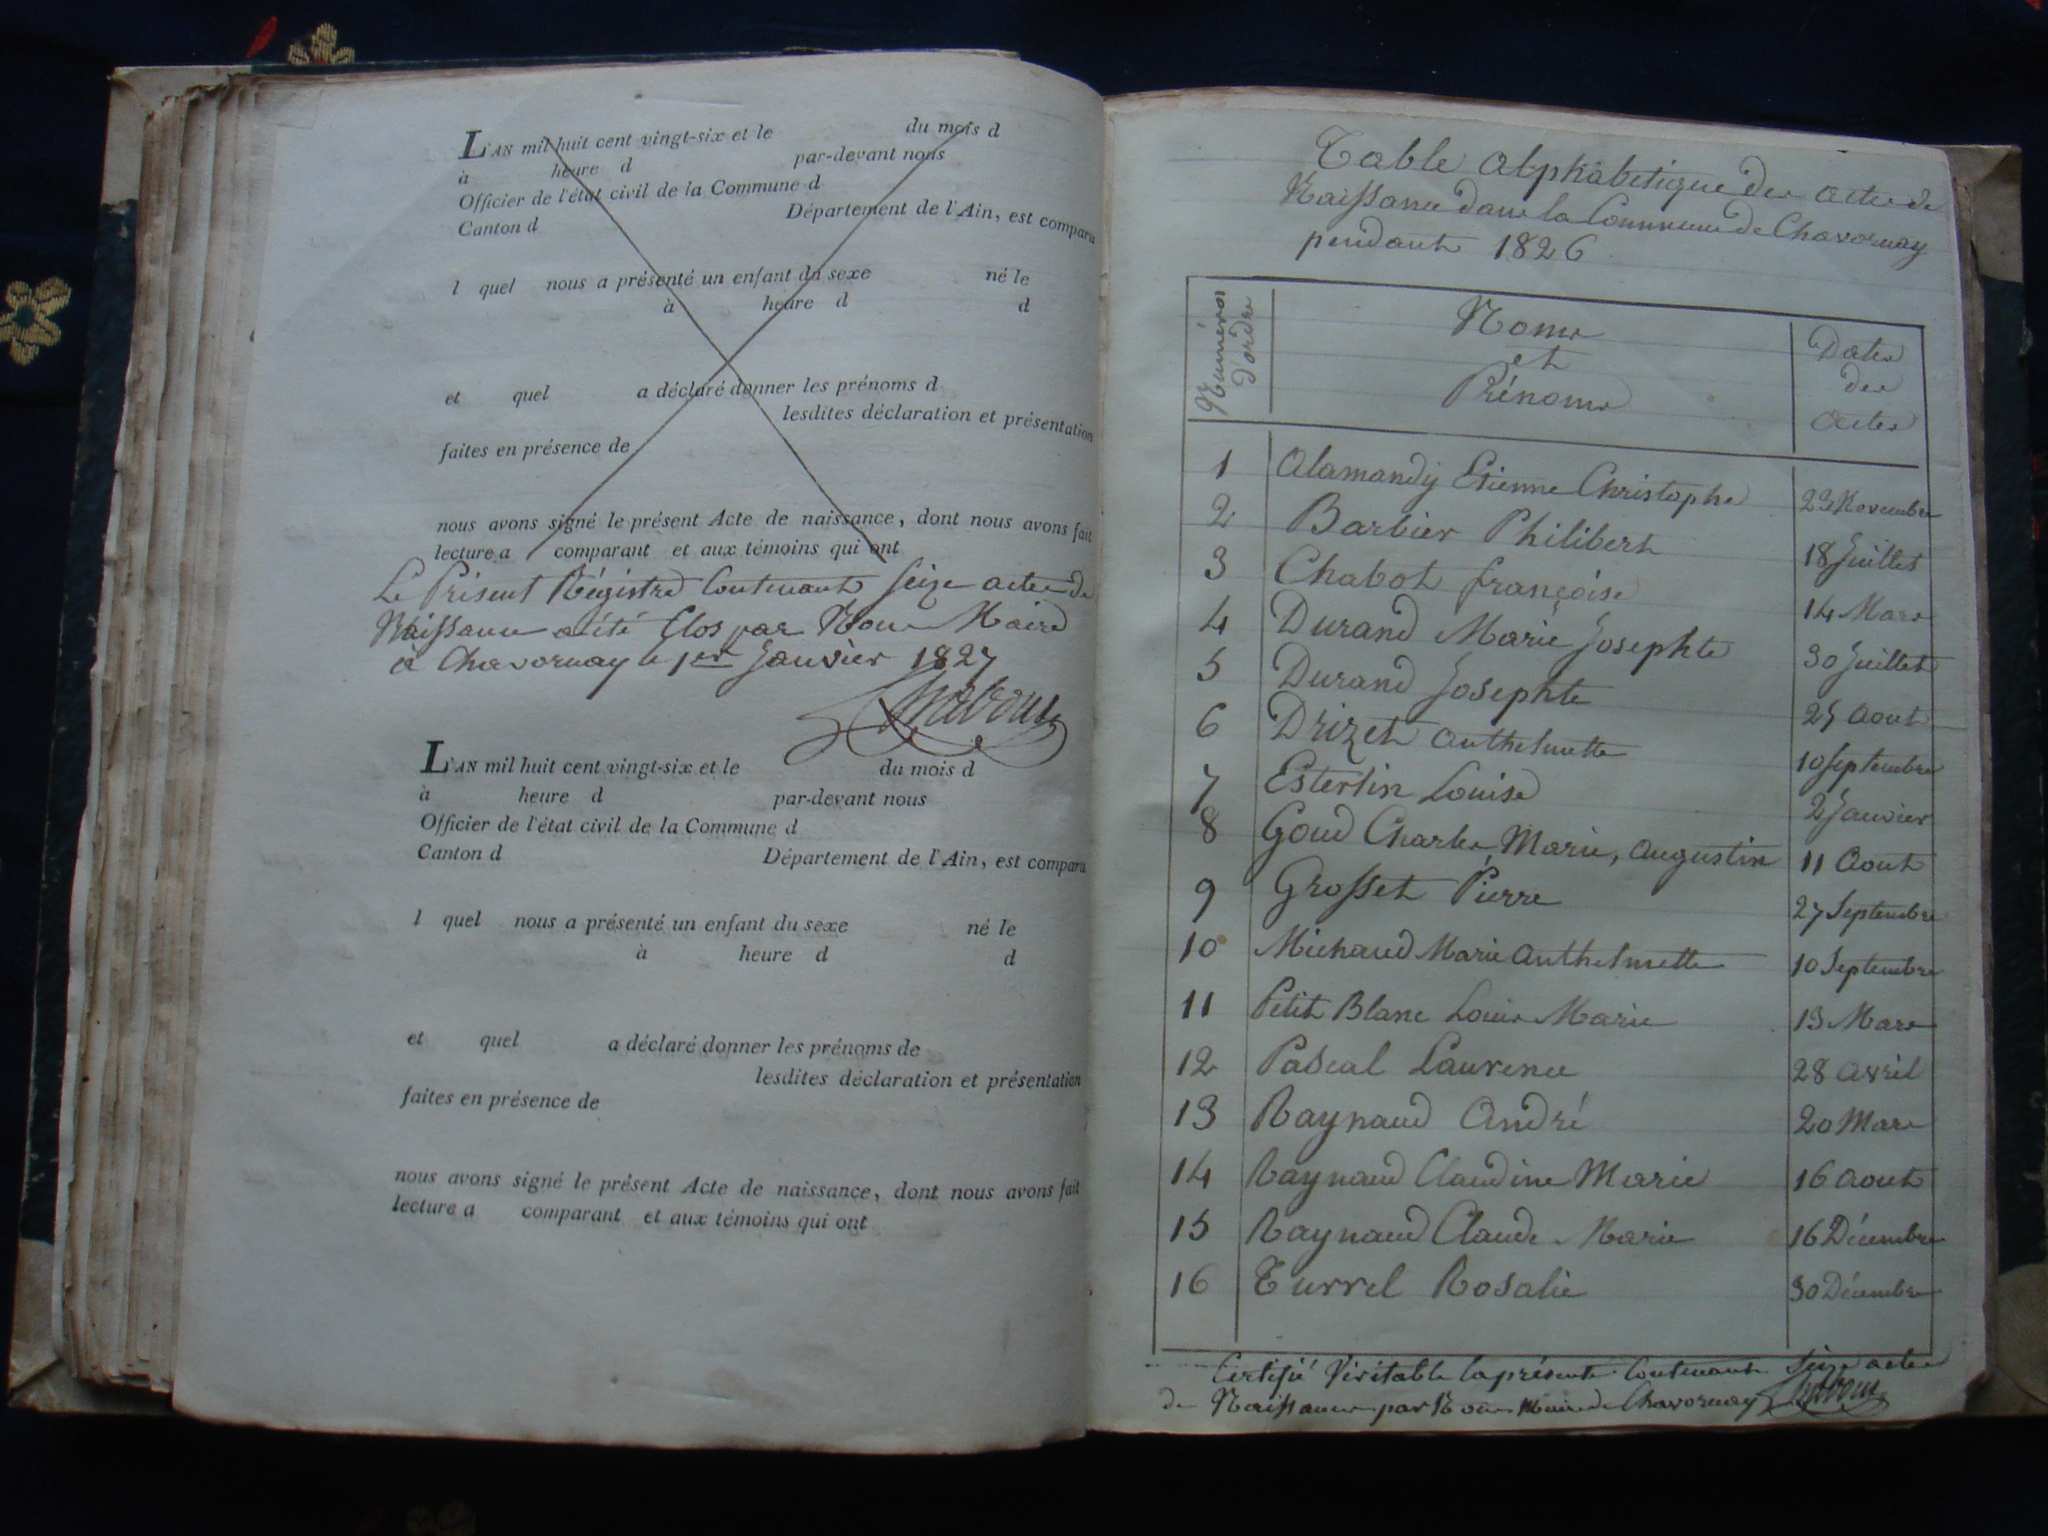 L'AN mil huit cent vingt-six et le du mois d
à heure d par-devant nous
Officier de l'état civil de la Commune d
Canton d Département de l'Ain, est comparu
l quel nous a présenté un enfant du sexe né le
à heure d d
et quel a déclaré donner les prénoms d
lesdites déclaration et présentation
faites en présence de
nous avons signé le présent Acte de naissance, dont nous avons fait
lecture a comparant et aux témoins qui ont
Le Présent Régistre Contenant Seize actes de
Naissance a été Clos par Nous Maire
à Chavornay le 1er Janvier 1827
L'AN mil huit cent vingt-six et le du mois d
à heure d par-devant nous
Officier de l'état civil de la Commune d
Canton d Département de l'Ain, est comparu
l quel nous a présenté un enfant du sexe né le
à heure d d
et quel a déclaré donner les prénoms de
lesdites déclaration et présentation
faites en présence de
nous avons signé le présent Acte de naissance, dont nous avons fait
lecture a comparant et aux témoins qui ont
Table alphabetique des actes de
Naissance dans la Commune de Chavornay
pendant 1826
Numéros d'ordre
Noms et Prénoms
Dates des actes
1 Alamandy Etienne Christophe 23 Novembre
2 Barbier Philibert 18 Juillet
3 Chabot françoise 14 Mars
4 Durand Marie Josephte 30 Juillet
5 Durand Josephte 25 Aout
6 Drizet anthelmette 10 Septembre
7 Estertin Louise 2 Janvier
8 Goud Charles Marie, augustin 11 Aout
9 Grosset Pierre 27 Septembre
10 Michaud Marie Anthelmette 10 Septembre
11 Petit Blanc Louis Marie 13 Mars
12 Pascal Laurence 28 avril
13 Raynaud André 20 Mars
14 Raynaud Claudine Marie 16 Aout
15 Raynaud Claude Marie 16 Décembre
16 Turrel Rosalie 30 Décembre
Certifié Véritable la présente Contenant Seize actes
de Naissance par Nous Maire de Chavornay